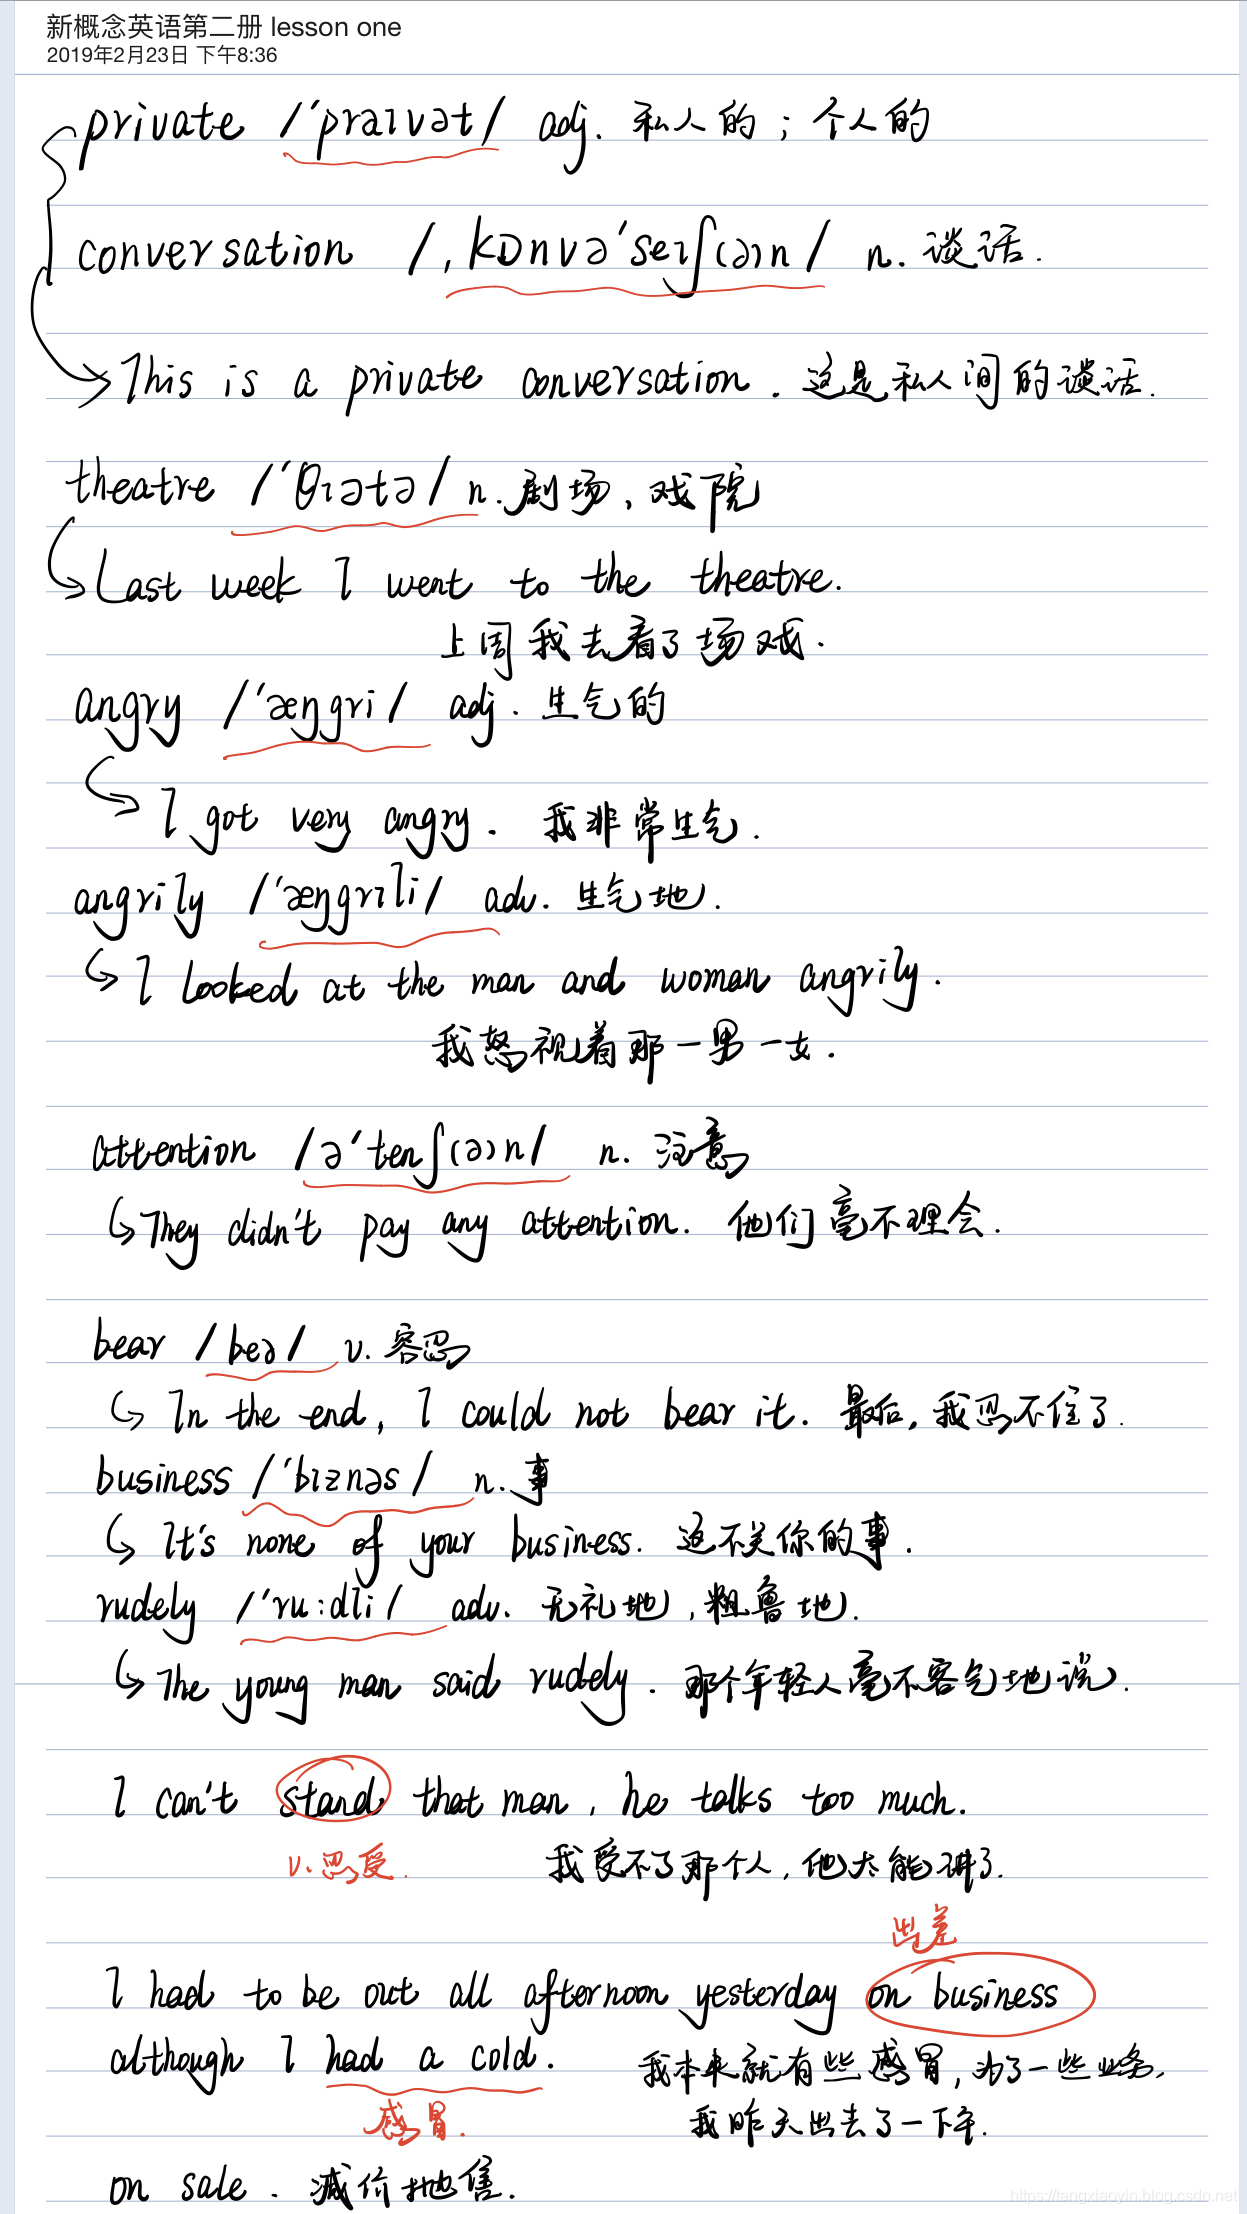 新概念英语第二册 lesson one
2019年2月23日 下午8:36
private /ˈpraɪvət/ adj. 私人的；个人的
conversation /ˌkɒnvəˈseɪʃ(ə)n/ n. 谈话.
This is a private conversation. 这是私人间的谈话.
theatre /ˈθɪətə/ n. 剧场，戏院
Last week I went to the theatre.
上周我去看了场戏.
angry /ˈæŋgri/ adj. 生气的
I got very angry. 我非常生气.
angrily /ˈæŋgrɪli/ adv. 生气地.
I looked at the man and woman angrily.
我怒视着那一男一女.
attention /əˈtenʃ(ə)n/ n. 注意
They didn't pay any attention. 他们毫不理会.
bear /beə/ v. 容忍
In the end, I could not bear it. 最后，我忍不住了.
business /ˈbɪznəs/ n. 事
It's none of your business. 这不关你的事.
rudely /ˈruːdli/ adv. 无礼地，粗鲁地.
The young man said rudely. 那个年轻人毫不客气地说.
I can't stand that man, he talks too much.
v. 忍受. 我受不了那个人，他太能讲了.
出差
I had to be out all afternoon yesterday on business
although I had a cold. 我本来就有些感冒，为了一些业务，
感冒. 我昨天出去了一下午.
on sale. 减价抛售.
https://tangxiaoyin.blog.csdn.net